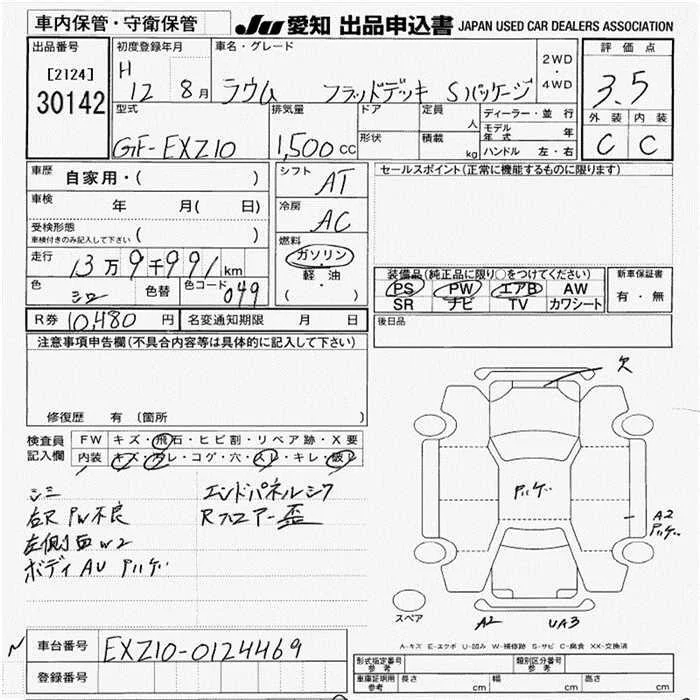 車内保管・守衛保管
JU 愛知 出品申込書 JAPAN USED CAR DEALERS ASSOCIATION
出品番号
[2124]
30142
初度登録年月
H 12 8月
車名・グレード
ラウム フラッドデッキ Sパッケージ
2WD・4WD
評価点
3.5
外装 内装
C C
型式
GF-EXZ10
排気量
1,500 cc
ドア
形状
定員 人
積載 kg
ディーラー・並行
モデル年式 年
ハンドル 左・右
車歴 自家用・( )
車検 年 月( 日)
受検形態
車検付きのみ記入して下さい ( )
走行 13万9千991km
色 シロ 色替 色コード 049
シフト AT
冷房 AC
燃料
ガソリン
・軽・油
( )
セールスポイント(正常に機能するものに限ります)
装備品(純正品に限り○をつけてください)
PS PW エアB AW
SR ナビ TV カワシート
新車保証書
有・無
R券 10,480円
名変通知期限 月 日
後日品
注意事項申告欄(不具合内容等は具体的に記入して下さい)
修復歴 有 (箇所 )
検査員記入欄
FW キズ・飛石・ヒビ割・リペア跡・X要
内装 キズ・ヨゴレ・コゲ・穴・スレ・キレ・破レ
シミ
右R PW不良
左側面W2
ボディ AU ハゲ
エンドパネルシワ
Rフロアー歪
欠
ハゲ
A2
ハゲ
A2
UA3
スペア
A-キズ E-エクボ U-凹み W-補修跡 S-サビ C-腐食 XX-交換済
車台番号 EXZ10-0124469
登録番号
形式指定番号 参考
類別区分番号 参考
車庫証明用 参考
長さ cm
幅 cm
高さ cm